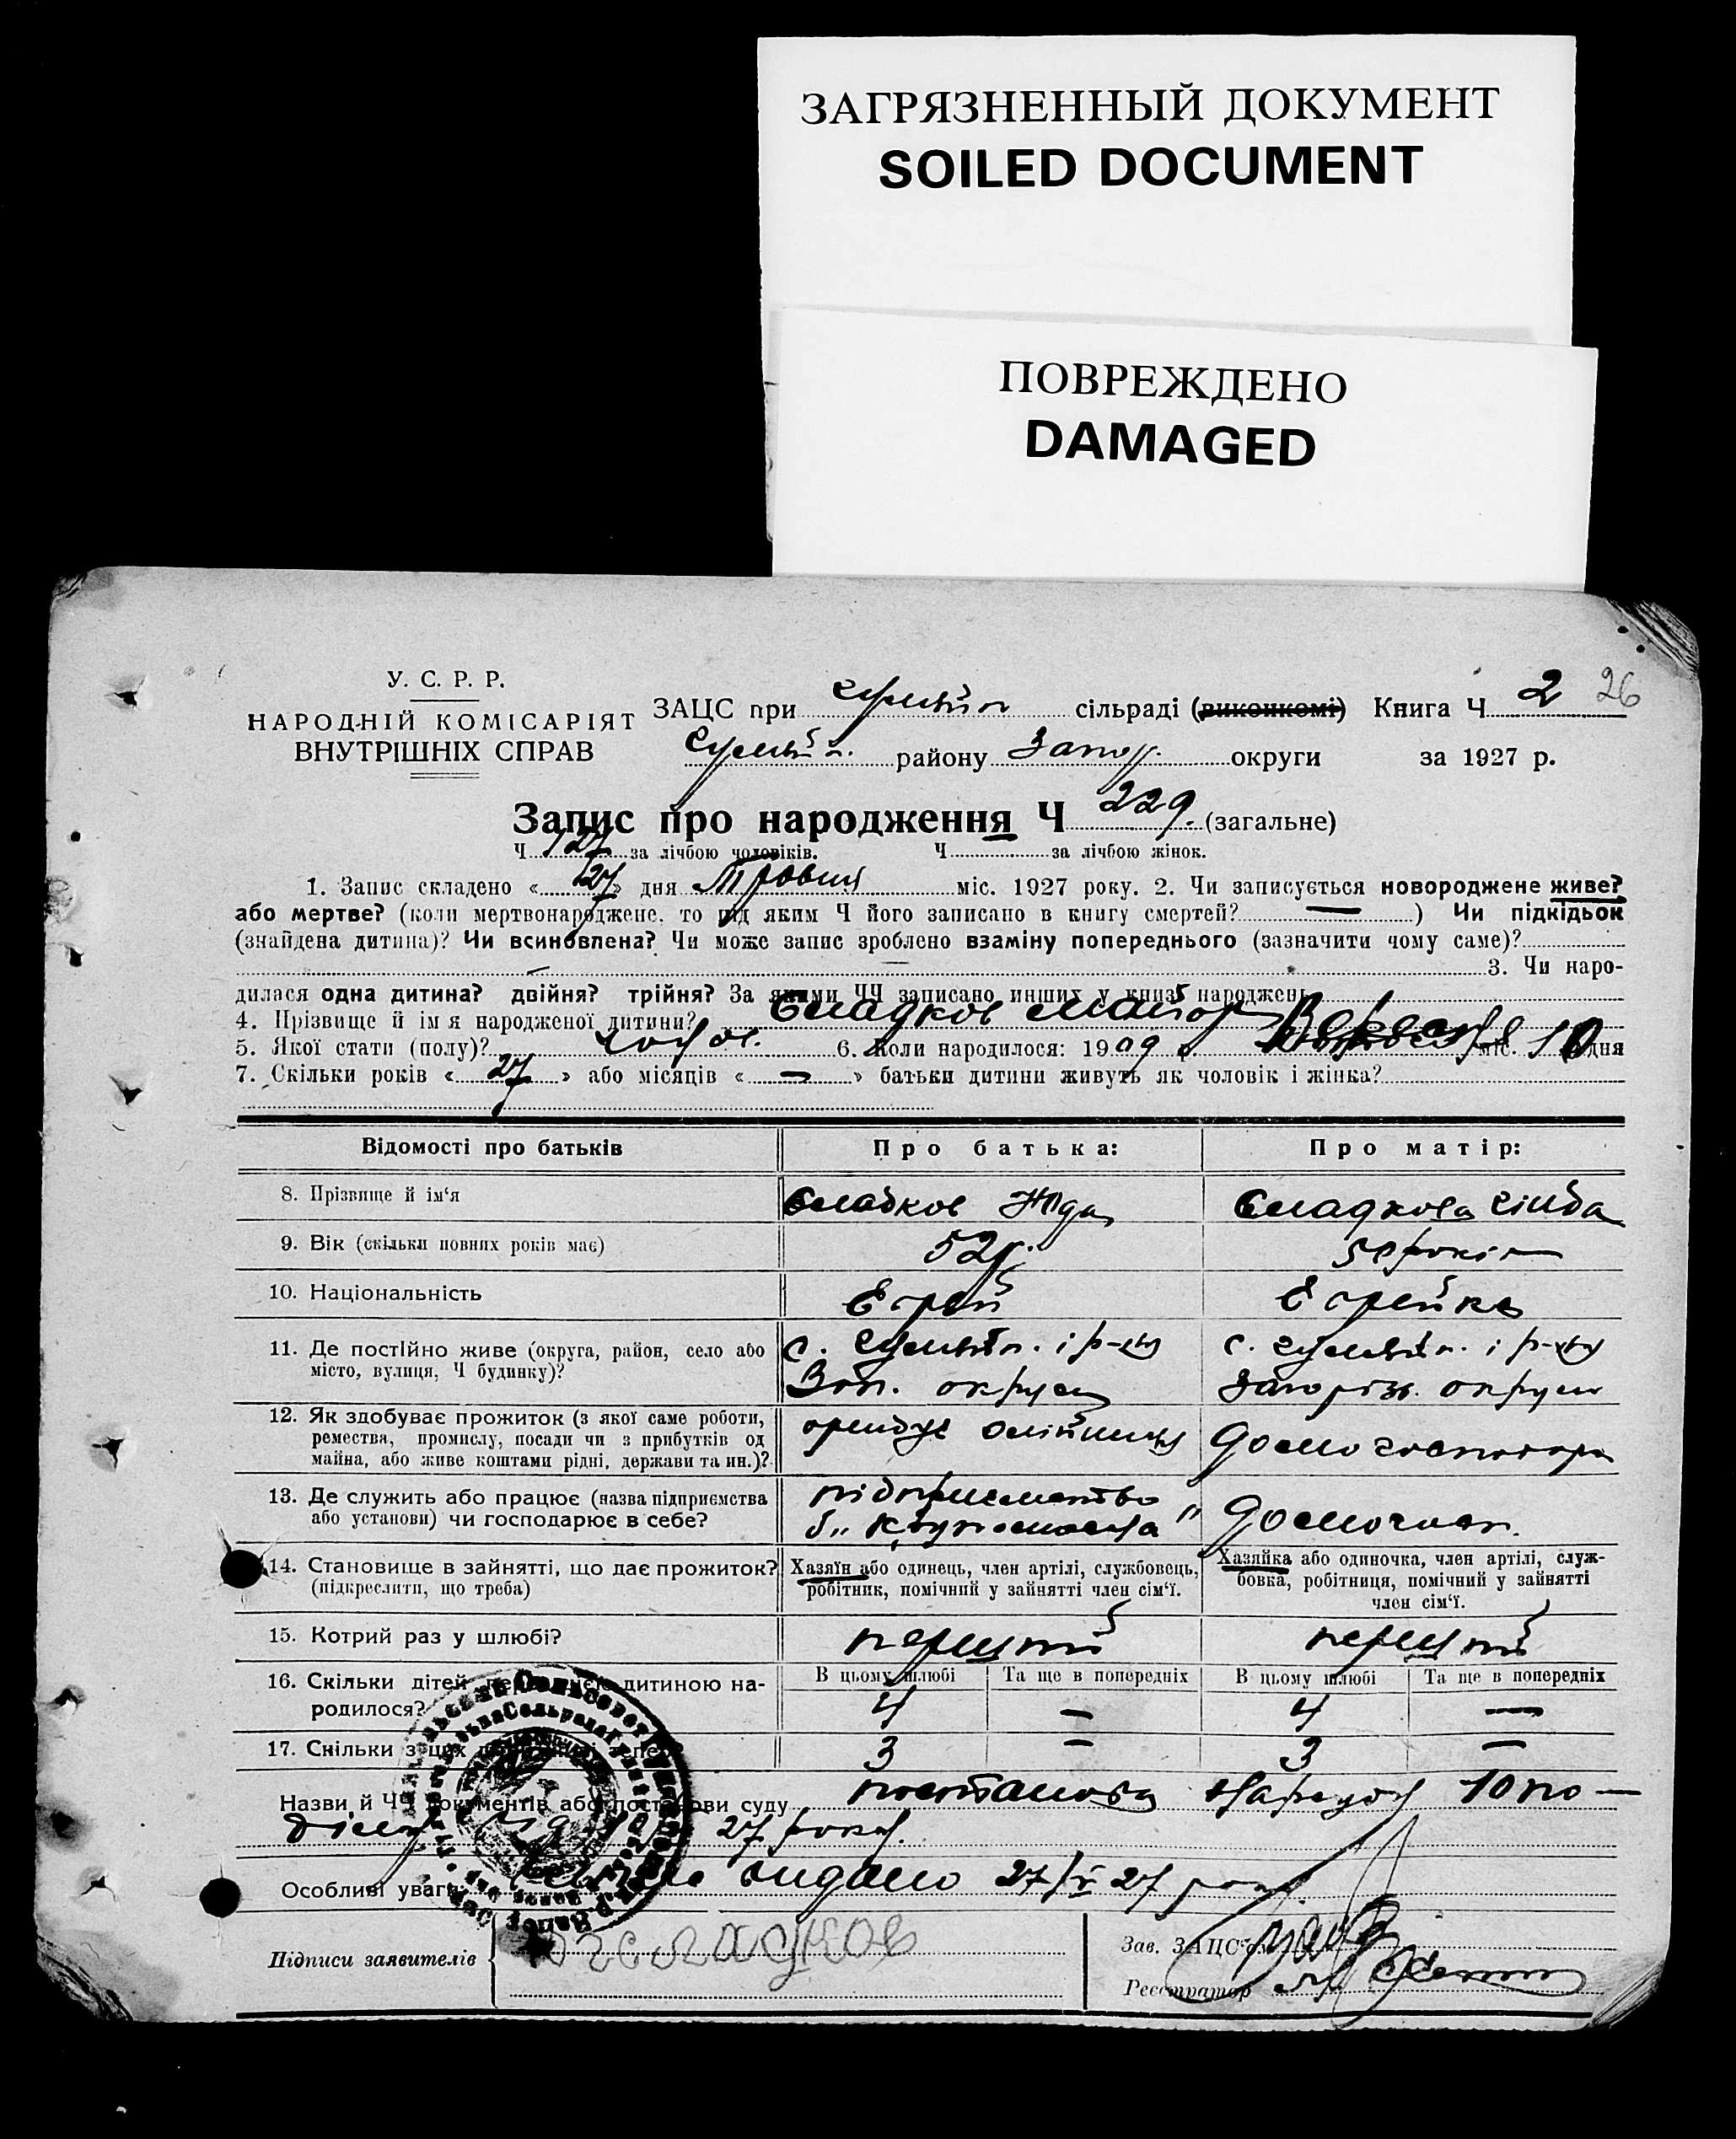 ЗАГРЯЗНЕННЫЙ ДОКУМЕНТ
SOILED DOCUMENT
ПОВРЕЖДЕНО
DAMAGED
У. С. Р. Р.
НАРОДНІЙ КОМІСАРІЯТ
ВНУТРІШНІХ СПРАВ
ЗАЦС при сільраді (виконкомі) Книга Ч 2 26
району Запор. округи за 1927 р.
Запис про народження Ч 229. (загальне)
Ч 127 за лічбою чоловіків. Ч за лічбою жінок.
1. Запис складено « 27 » дня Травня міс. 1927 року. 2. Чи записується новороджене живе?
або мертве? (коли мертвонароджене, то під яким Ч його записано в книгу смертей? — ) Чи підкідьок
(знайдена дитина)? Чи всиновлена? Чи може запис зроблено взаміну попереднього (зазначити чому саме)?
— 3. Чи наро-
дилася одна дитина? двійня? трійня? За якими ЧЧ записано инших у книзі народжень
4. Прізвище й ім'я народженої дитини? Сладков Майор
5. Якої стати (полу)? чолов. 6. Коли народилося: 1909 р. Вересня міс. 10 дня
7. Скільки років « 27 » або місяців « — » батьки дитини живуть як чоловік і жінка?
Відомості про батьків Про батька: Про матір:
8. Прізвище й ім'я Сладков Юда Сладкова
9. Вік (скільки повних років має) 52р. 50 років
10. Національність Єврей Єврейка
11. Де постійно живе (округа, район, село або місто, вулиця, Ч будинку)? с. і р-ну с. і р-ну
Зап. округи Запоріз. округи
12. Як здобуває прожиток (з якої саме роботи, ремества, промислу, посади чи з прибутків од майна, або живе коштами рідні, держави та ин.)? орендує олійницю домогосподарка
13. Де служить або працює (назва підприємства або установи) чи господарює в себе? підприємство домогосп.
14. Становище в зайнятті, що дає прожиток? (підкреслити, що треба)
Хазяїн або одинець, член артілі, службовець, робітник, помічний у зайнятті член сім'ї.
Хазяйка або одиночка, член артілі, служ-
бовка, робітниця, помічний у зайнятті
член сім'ї.
15. Котрий раз у шлюбі? перший перший
16. Скільки дітей перед цією дитиною на-
родилося? В цьому шлюбі Та ще в попередніх В цьому шлюбі Та ще в попередніх
4 — 4 —
17. Скільки з них 3 — 3 —
Назви й ЧЧ документів або постанови суду постанова Нарсуду
27 року.
Особливі уваги видано 27/V 27 року.
Підписи заявителів Сладков
Зав. ЗАЦС'ом
Реєстратор